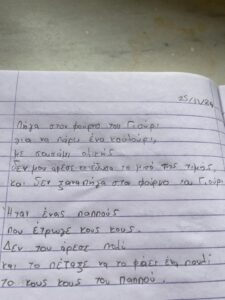 25/11/24
Πήγα στον φούρνο του Γιούρι
για να πάρω ένα κουλούρι,
με σουσάμι αττικής
δεν μου άρεσε το μισό της τιμής
και δεν ξαναπήγα στον φούρνο του Γιούρι
Ήταν ένας παππούς
που έτρωγε κους κους.
Δεν του άρεσε πολύ
και το πέταξε να το φάει ένα πουλί
το κους κους του παππού.